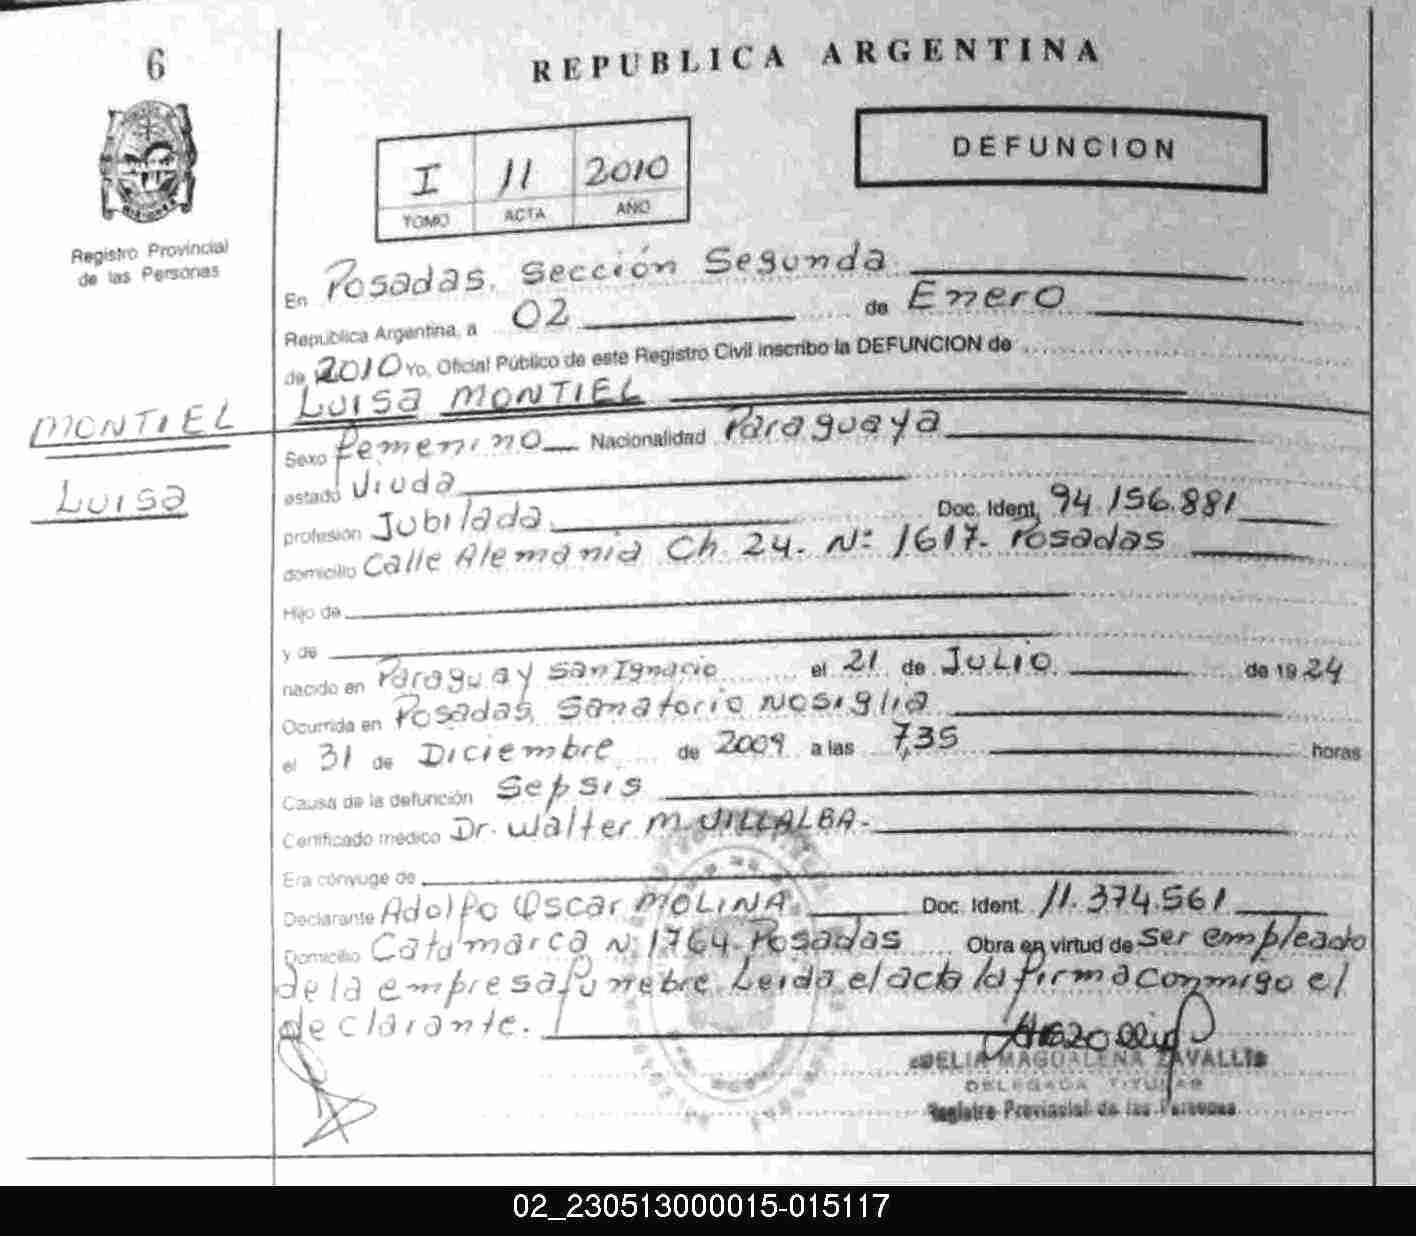 6
REPUBLICA ARGENTINA
DEFUNCION
I 11 2010
TOMO ACTA AÑO
Registro Provincial
de las Personas
En Posadas, Sección Segunda
República Argentina, a 02 de Enero
de 2010 Yo, Oficial Público de este Registro Civil inscribo la DEFUNCION de
Luisa MONTIEL
MONTIEL
Luisa
Sexo Femenino Nacionalidad Paraguaya
estado Viuda
profesión Jubilada. Doc. Ident. 94.156.881
domicilio Calle Alemania Ch 24. Nº 1617. Posadas
Hijo de
y de
nacido en Paraguay San Ignacio el 21 de JULIO de 1924
Ocurrida en Posadas, Sanatorio Nosiglia
el 31 de Diciembre de 2009 a las 7,35 horas
Causa de la defunción Sepsis
Certificado médico Dr. Walter M. VILLALBA.
Era cónyuge de
Declarante Adolfo Oscar MOLINA Doc. Ident. 11.374.561
Domicilio Catamarca Nº 1764 Posadas Obra en virtud de ser empleado
de la empresa fúnebre. Leída el acta la firma conmigo el
declarante.
DELIA MAGDALENA ZAVALLIS
DELEGADA TITULAR
Registro Provincial de las Personas
02_230513000015-015117